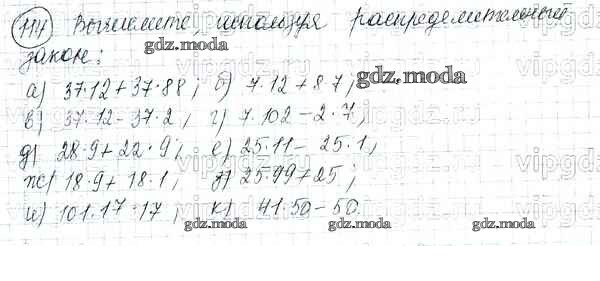 114 Вычислите, используя распределительный
закон:
а) 37·12+37·88; б) 7·12+8·7;
в) 37·12-37·2; г) 7·102-2·7;
д) 28·9+22·9; е) 25·11-25·1;
ж) 18·9+18·1; з) 25·99+25;
и) 101·17·17; к) 41·50-50.
gdz.moda
gdz.moda
gdz.moda
gdz.moda
gdz.moda
gdz.moda
gdz.moda
gdz.moda
vipgdz.ru
vipgdz.ru